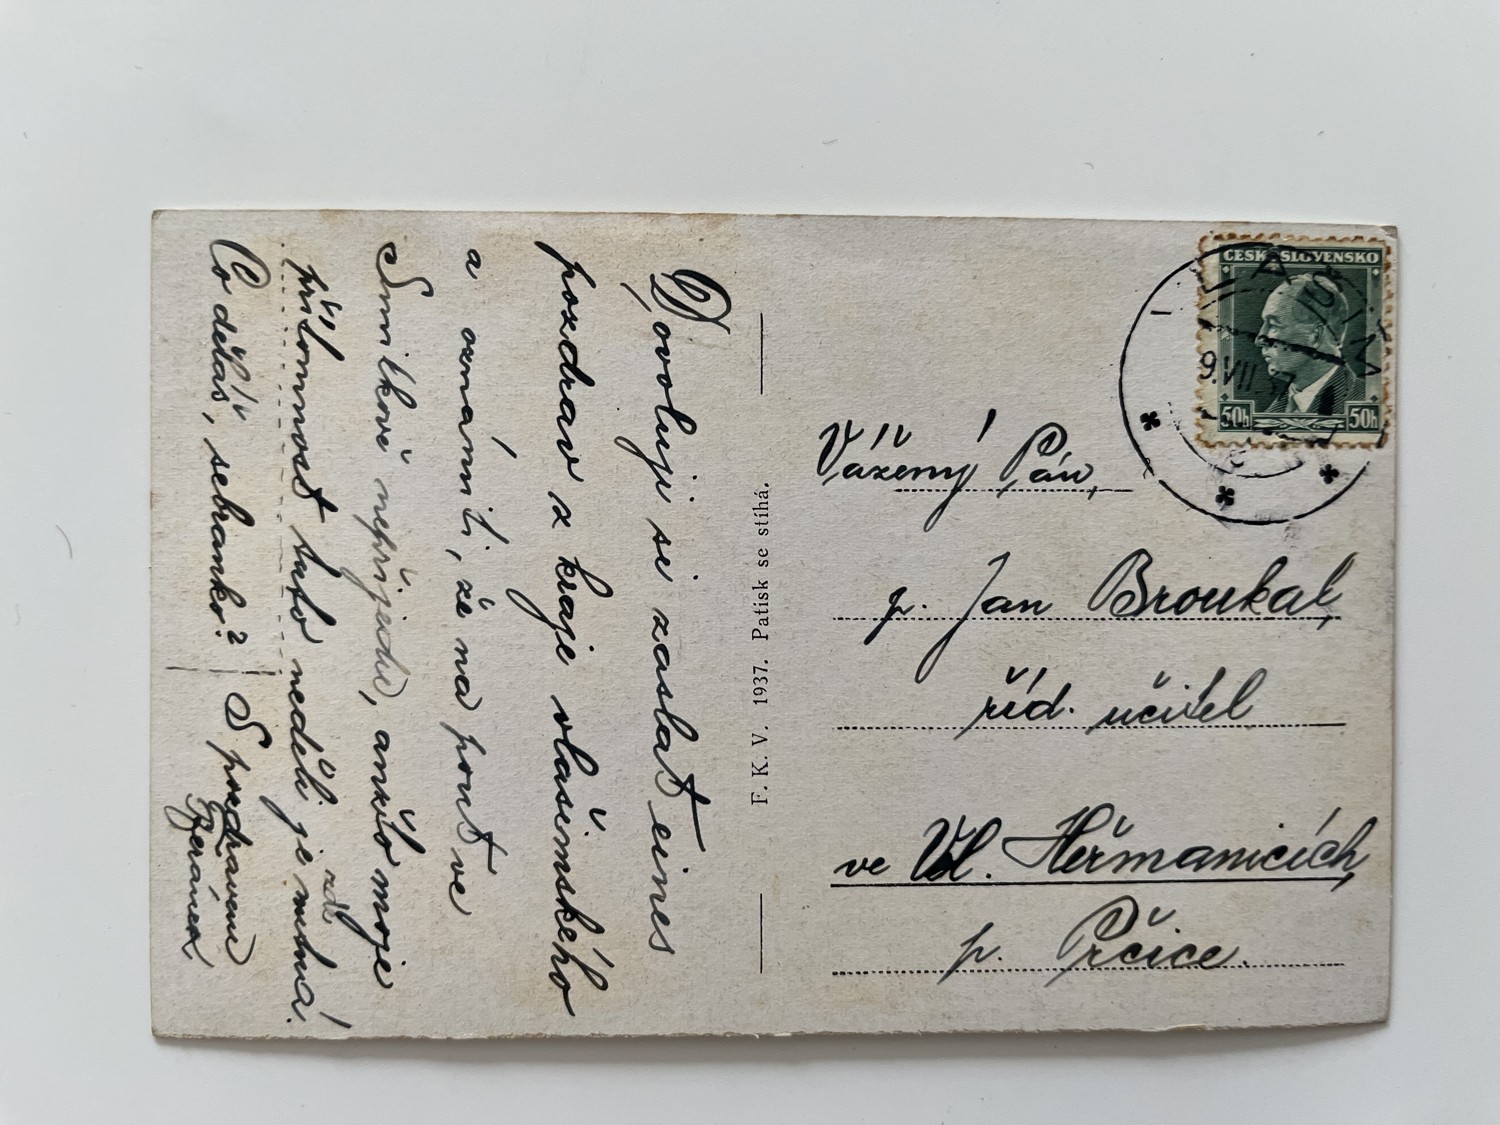 Dovoluji si zaslat eines
pozdrav z kraje vlašimského
a oznámiti, že na pouť ve
Smilkově nepřijedu, anžto moje
přítomnost tuto neděli je zde nutná!
Co děláš, sebranko?
S pozdravem
F. K. V. 1937. Patisk se stíhá.
ČESKOSLOVENSKO
50h 50h
9.VII
Vážený Pán,
p. Jan Broukal
říd. učitel
ve Vel. Heřmanicích,
p. Prčice.